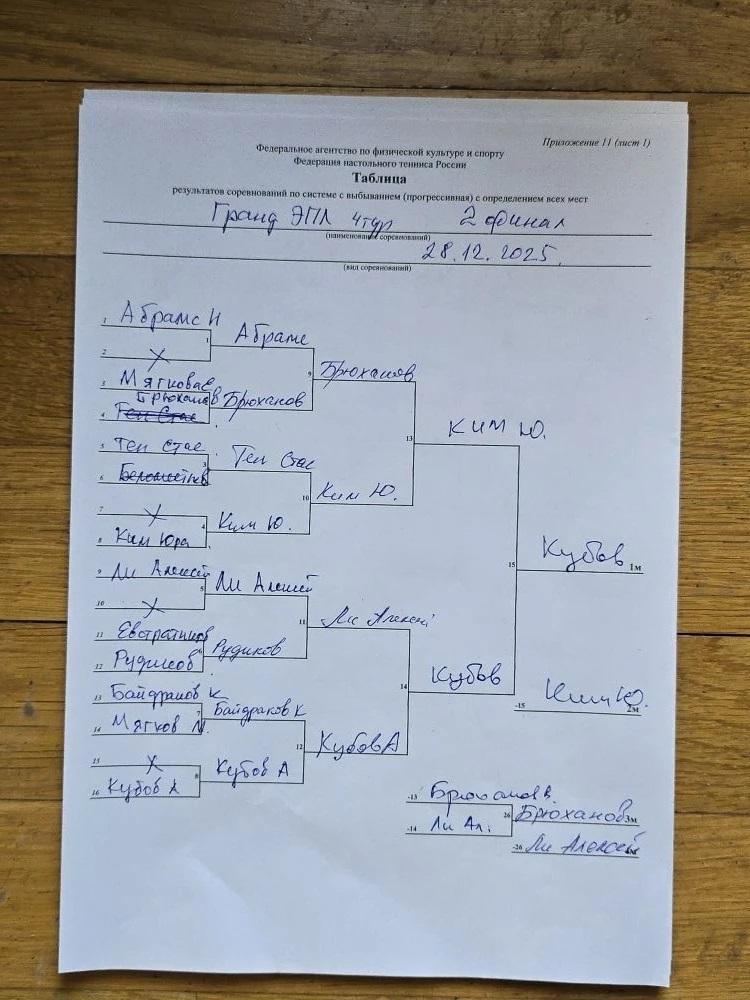 Приложение 11 (лист 1)
Федеральное агентство по физической культуре и спорту
Федерация настольного тенниса России
Таблица
результатов соревнований по системе с выбыванием (прогрессивная) с определением всех мест
Гранд ЭПЛ 4тур 2 финал
(наименование соревнований)
28.12.2025.
(вид соревнований)
1 Абрамс Н
1 Абрамс
2 X
9 Брюханов
3 Мягковас
Брюханов
Брюханов
4 Тен Стас
13 Ким Ю.
5 Тен Стас
3 Тен Стас
6
10 Ким Ю.
7 X
4 Ким Ю.
8 Ким Юра
15 Кубов 1м
9 Ли Алексей
5 Ли Алексей
10 X
11 Ли Алексей
11 Евстратиков
6 Рудиков
12 Рудиков
14 Кубов
-15 Ким Ю. 2м
13 Байдраков К
7 Байдраков К
14 Мягков М.
12 Кубов А
15 X
8 Кубов А
16 Кубов А
-13 Брюханов В.
26 Брюханов 3м
-14 Ли Ал.
-26 Ли Алексей